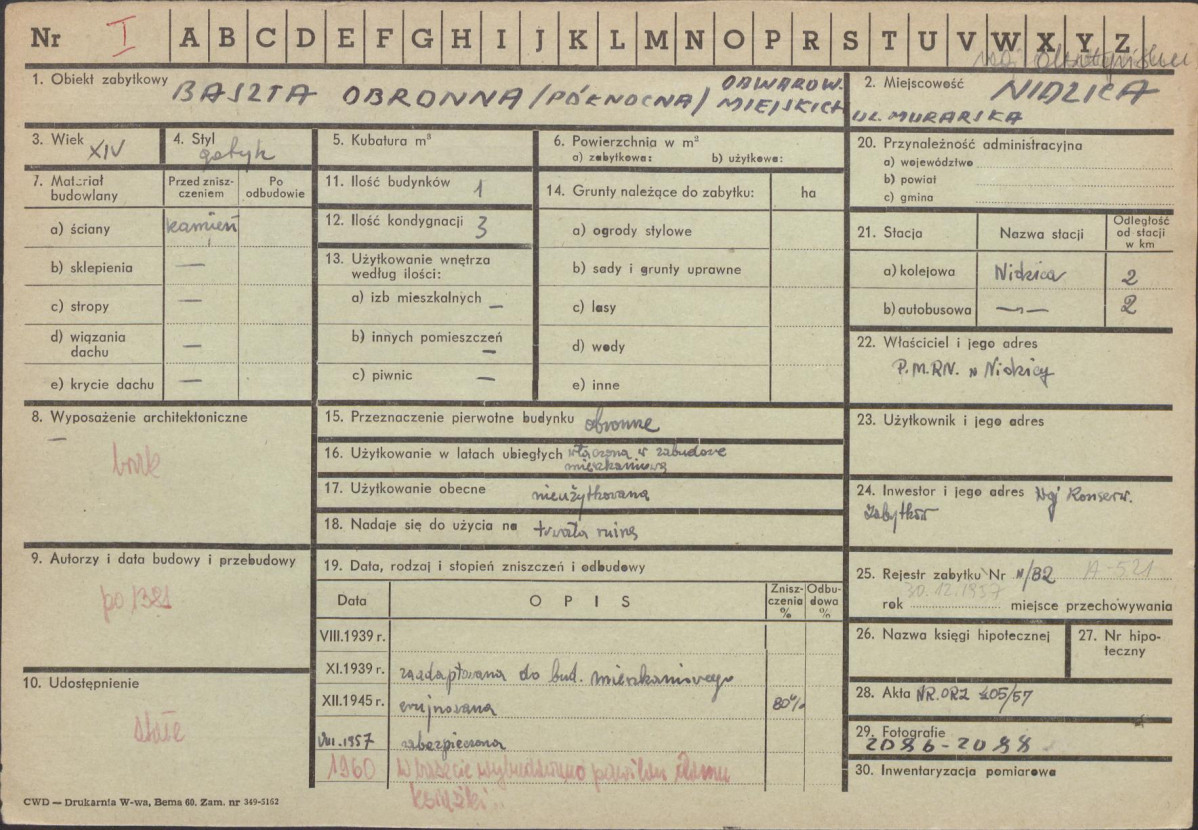 Nr I A B C D E F G H I J K L M N O P R S T U V W X Y Z
woj. olsztyńskie
1. Obiekt zabytkowy BASZTA OBRONNA /PÓŁNOCNA/ OBWAROW. MIEJSKICH
2. Miejscowość NIDZICA
UL. MURARSKA
3. Wiek XIV
4. Styl gotyk
5. Kubatura m³
6. Powierzchnia w m²
a) zabytkowa: b) użytkowa:
20. Przynależność administracyjna
a) województwo
b) powiat
c) gmina
7. Materiał budowlany
Przed zniszczeniem
Po odbudowie
a) ściany kamień
b) sklepienia —
c) stropy —
d) wiązania dachu —
e) krycie dachu —
11. Ilość budynków 1
12. Ilość kondygnacji 3
13. Użytkowanie wnętrza według ilości:
a) izb mieszkalnych —
b) innych pomieszczeń —
c) piwnic —
14. Grunty należące do zabytku: ha
a) ogrody stylowe
b) sady i grunty uprawne
c) lasy
d) wody
e) inne
21. Stacja Nazwa stacji Odległość od stacji w km
a) kolejowa Nidzica 2
b) autobusowa —"— 2
22. Właściciel i jego adres
P.M.RN. w Nidzicy
8. Wyposażenie architektoniczne
—
brak
15. Przeznaczenie pierwotne budynku obronne
16. Użytkowanie w latach ubiegłych włączona w zabudowę
mieszkaniową
17. Użytkowanie obecne nieużytkowana
18. Nadaje się do użycia na trwałą ruinę
23. Użytkownik i jego adres
24. Inwestor i jego adres Woj. Konserw.
Zabytków
9. Autorzy i data budowy i przebudowy
po 1381
10. Udostępnienie
stałe
19. Data, rodzaj i stopień zniszczeń i odbudowy
Data OPIS Zniszczenia % Odbudowa %
VIII.1939 r.
XI.1939 r. zaadaptowana do bud. mieszkaniowego
XII.1945 r. zrujnowana 80%
VIII.1957 zabezpieczona
1960 W baszcie wybudowano pawilon domu
książki..
25. Rejestr zabytku Nr N/82 A-521
30.12.1957
rok miejsce przechowywania
26. Nazwa księgi hipotecznej
27. Nr hipoteczny
28. Akta NR.ORZ 205/57
29. Fotografie
2086-2088
30. Inwentaryzacja pomiarowa
CWD — Drukarnia W-wa, Bema 60. Zam. nr 349-5162